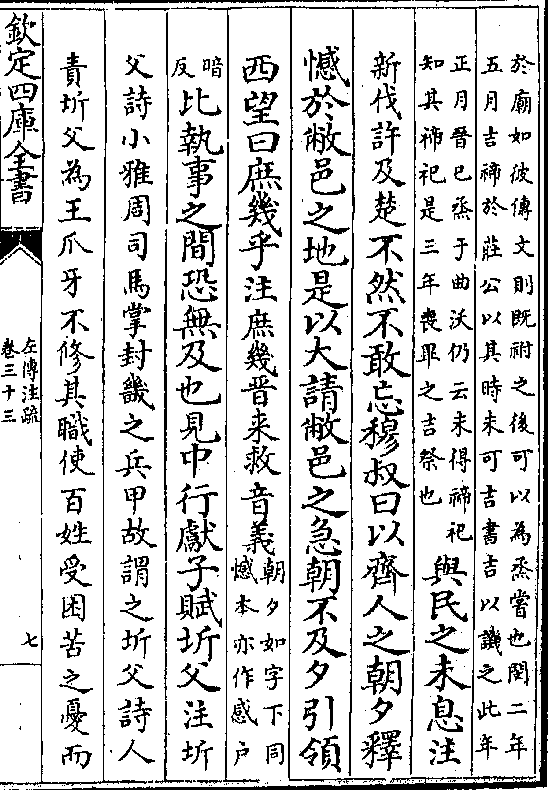 於廟如彼傳文則既祔之後可以為烝嘗也閔二年
五月吉禘於莊公以其時未可吉書吉以譏之此年
正月晉已烝于曲沃仍云未得禘祀
知其禘祀是三年喪畢之吉祭也
與民之未息注
新伐許及楚不然不敢忘穆叔曰以齊人之朝夕釋
憾於敝邑之地是以大請敝邑之急朝不及夕引領
西望曰庶幾乎注庶幾晉来救音義
朝夕如字下同
憾本亦作感户
暗
反
比執事之間恐無及也見中行獻子賦圻父注圻
父詩小雅周司馬掌封畿之兵甲故謂之圻父詩人
責圻父為王爪牙不修其職使百姓受困苦之憂而
欽定四庫全書
左傳注疏
卷三十三
七